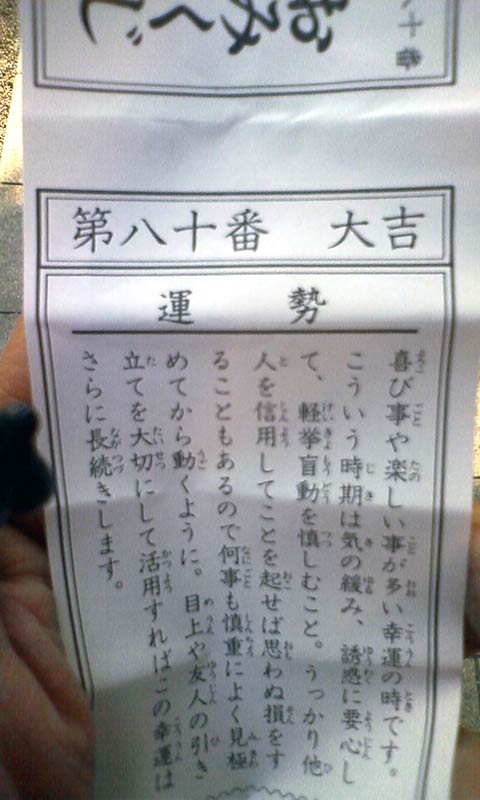 おみくじ
十番
第八十番 大吉
運勢
喜び事や楽しい事が多い幸運の時です。
こういう時期は気の緩み、誘惑に要心し
て、軽挙盲動を慎しむこと。うっかり他
人を信用してことを起せば思わぬ損をす
ることもあるので何事も慎重によく見極
めてから動くように。目上や友人の引き
立てを大切にして活用すればこの幸運は
さらに長続きします。